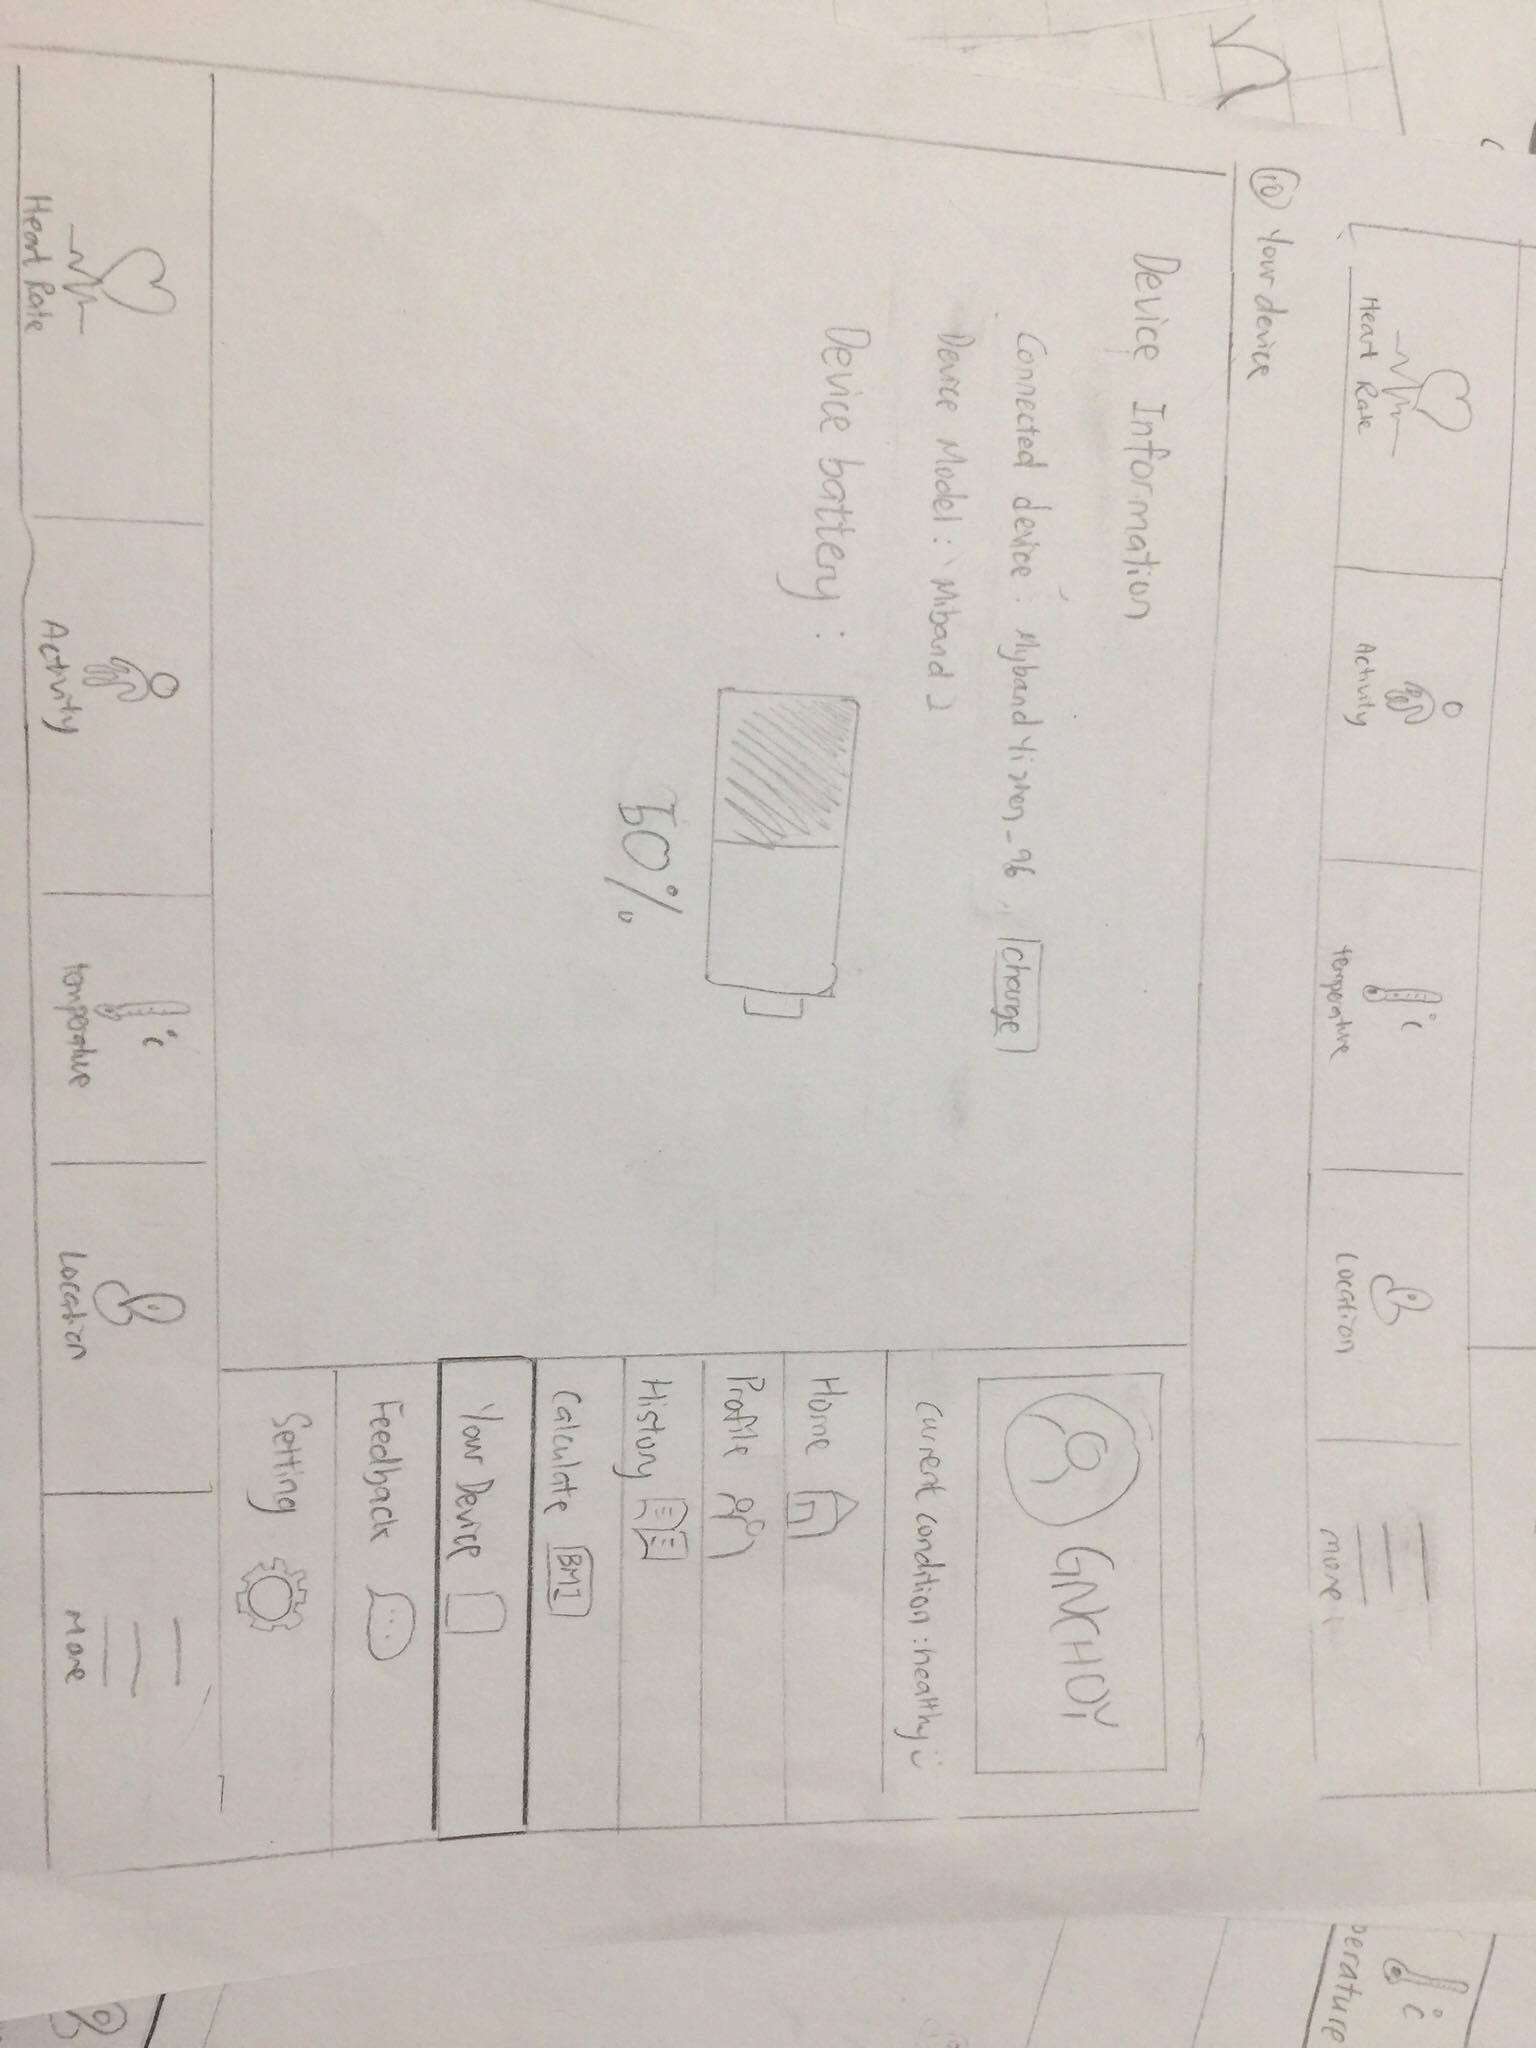 Heart Rate
Activity
temperature
Location
more
10 Your device
Device Information
Connected device :
change
Device Model : Miband 2
Device battery :
50%
GNCHOY
Current condition : healthy
Home
Profile
History
Calculate BMI
Your Device
Feedback
Setting
Heart Rate
Activity
temperature
°c
Location
More
perature